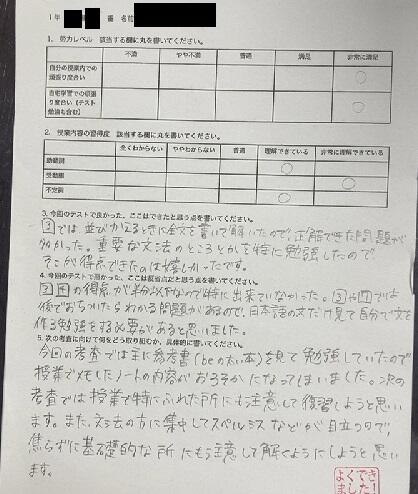 1年 番 名前
1. 努力レベル 該当する欄に丸を書いてください。
不満 やや不満 普通 満足 非常に満足
自分の授業内での
頑張り度合い ○
自宅学習での頑張
り度合い【テスト
勉強も含む】 ○
2. 授業内容の習得度 該当する欄に丸を書いてください。
全くわからない ややわからない 普通 理解できている 非常に理解できている
助動詞 ○
受動態 ○
不定詞 ○
3. 今回のテストで良かった、ここはできたと思う点を書いてください。
3では並びかえるときに全文を書いて解いたので、正解できた問題が
多かった。重要な文法のところとかを特に勉強したので
そこが得点できたのは嬉しかったです。
4. 今回のテストで悪かった、ここは該当点だと思う点を書いてください。
の得点が半分以下なので特に出来ていなかった。では
後でおちついたらわかる問題があるので、日本語の文だけ見て自分で文を
作る勉強をする必要があると思いました。
5. 次の考査に向けて何をどう取り組むか、具体的に書いてください。
今回の考査では主に参考書(beの太い本)を見て勉強していたので
授業でメモしたノートの内容がおろそかになってしまいました。次の
考査では授業で特にふれた所にも注意して復習しようと思い
ます。また、文法の方に集中してスペルミスなどが目立つので、
焦らずに基礎的な所にもう注意して解くようにしようと思い
ます。
よくでき
ました!